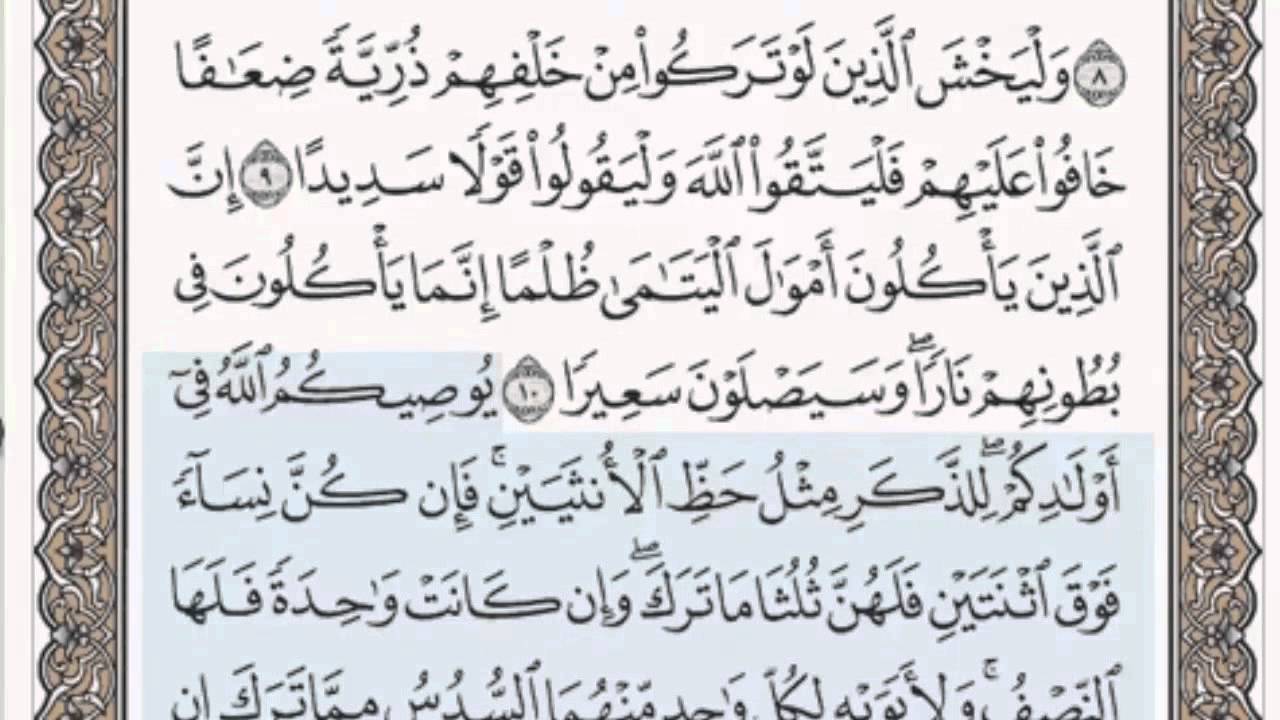 ﴿٨﴾ وَلْيَخْشَ ٱلَّذِينَ لَوْ تَرَكُوا۟ مِنْ خَلْفِهِمْ ذُرِّيَّةً ضِعَـٰفًا
خَافُوا۟ عَلَيْهِمْ فَلْيَتَّقُوا۟ ٱللَّهَ وَلْيَقُولُوا۟ قَوْلًا سَدِيدًا ﴿٩﴾ إِنَّ
ٱلَّذِينَ يَأْكُلُونَ أَمْوَٰلَ ٱلْيَتَـٰمَىٰ ظُلْمًا إِنَّمَا يَأْكُلُونَ فِى
بُطُونِهِمْ نَارًا ۖ وَسَيَصْلَوْنَ سَعِيرًا ﴿١٠﴾ يُوصِيكُمُ ٱللَّهُ فِىٓ
أَوْلَـٰدِكُمْ ۖ لِلذَّكَرِ مِثْلُ حَظِّ ٱلْأُنثَيَيْنِ ۚ فَإِن كُنَّ نِسَآءً
فَوْقَ ٱثْنَتَيْنِ فَلَهُنَّ ثُلُثَا مَا تَرَكَ ۖ وَإِن كَانَتْ وَٰحِدَةً فَلَهَا
ٱلنِّصْفُ ۚ وَلِأَبَوَيْهِ لِكُلِّ وَٰحِدٍ مِّنْهُمَا ٱلسُّدُسُ مِمَّا تَرَكَ إِن